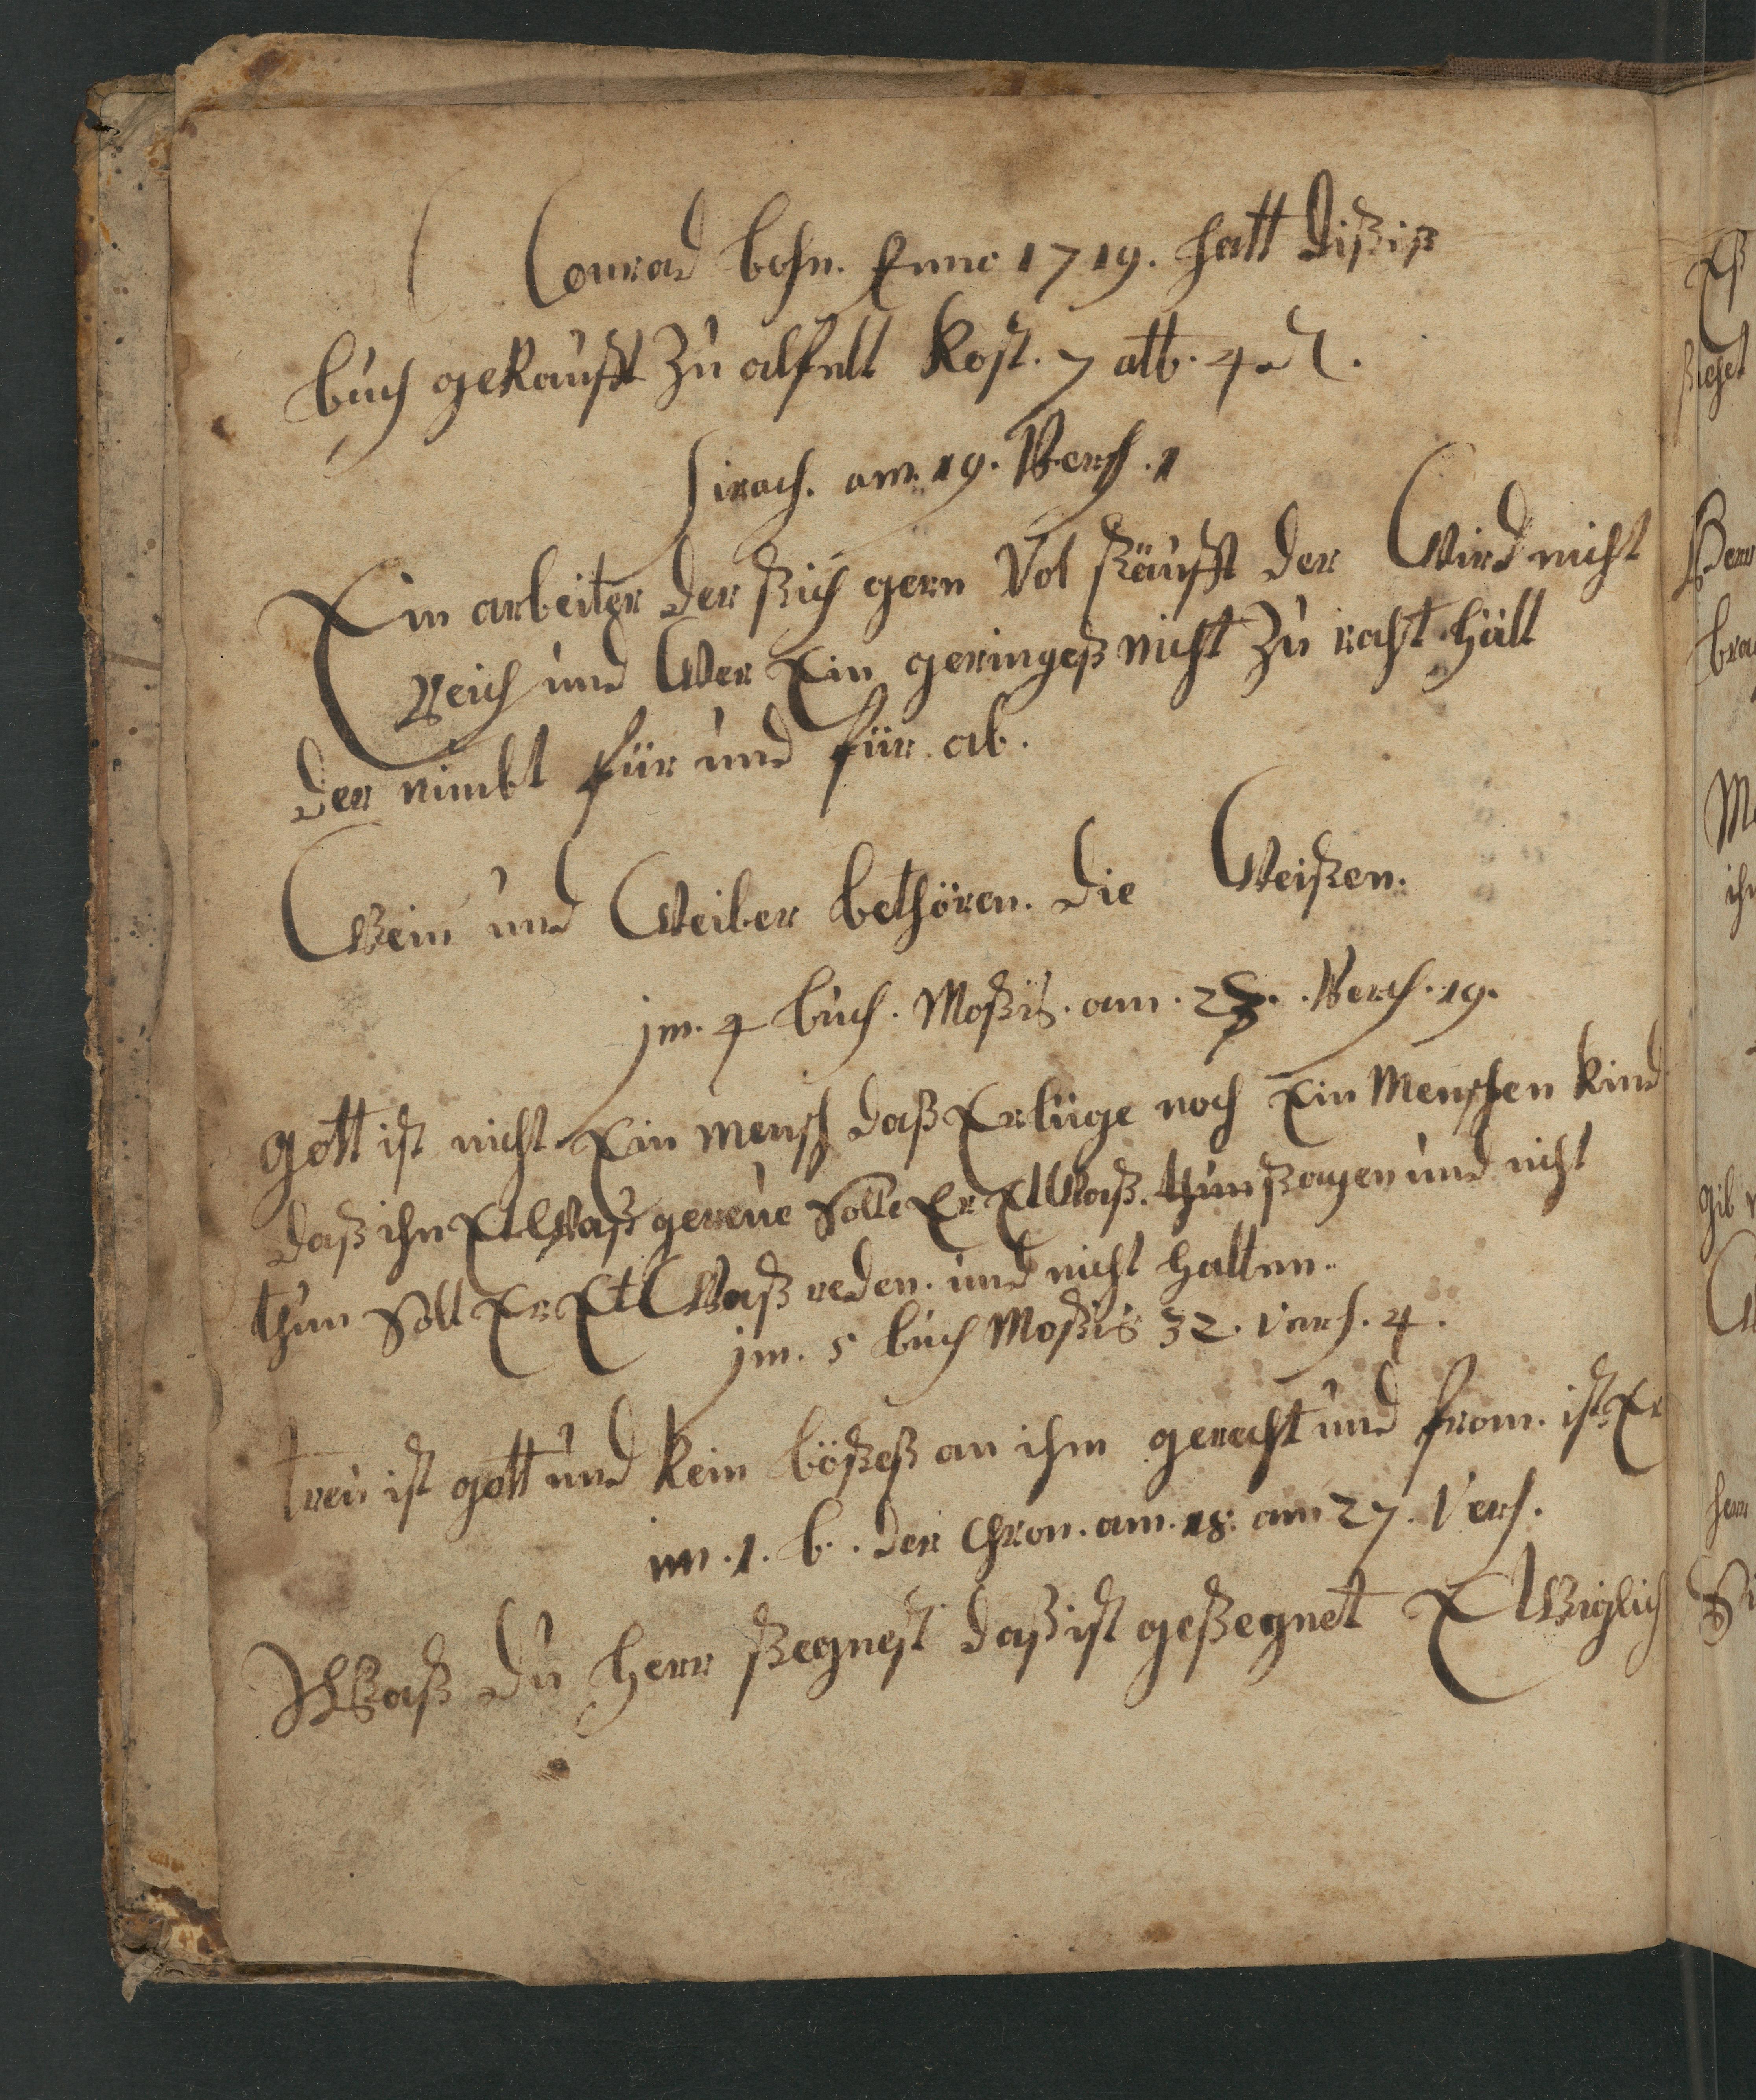 Conrad bohn. Anno 1719. hatt dißiß
buch gekaufft zu alsfelt kost. 7 alb. 4 d.
Sirach. am. 19. Verß. 1
Ein arbeiter der ßich gern Vol ßäufft der Wird nicht
Reich und Wer Ein geringeß nicht zu raht hält
der nimbt für und für ab.
Wein und Weiber bethören. die Weißen.
jm. 4 buch. Moßis. am. 23. Verß. 19.
gott ist nicht Ein mensch daß Er lüge noch Ein Menschen kind
daß ihn Et Waß gereue Solte Er Et Waß. ßagen und nicht
thun Solt Er Et Waß reden. und nicht halten.
jm. 5 buch Moßis 32. Verß. 4.
treu ist gott und kein bößeß an ihm gerecht und from. ist Er
im. 1. b. der Chron. am. 18. am 27. Verß.
Waß du herr ßegnest daß ist geßegnet EWiglich
Eß
ßiehet
bra
M
ih
gib
herr